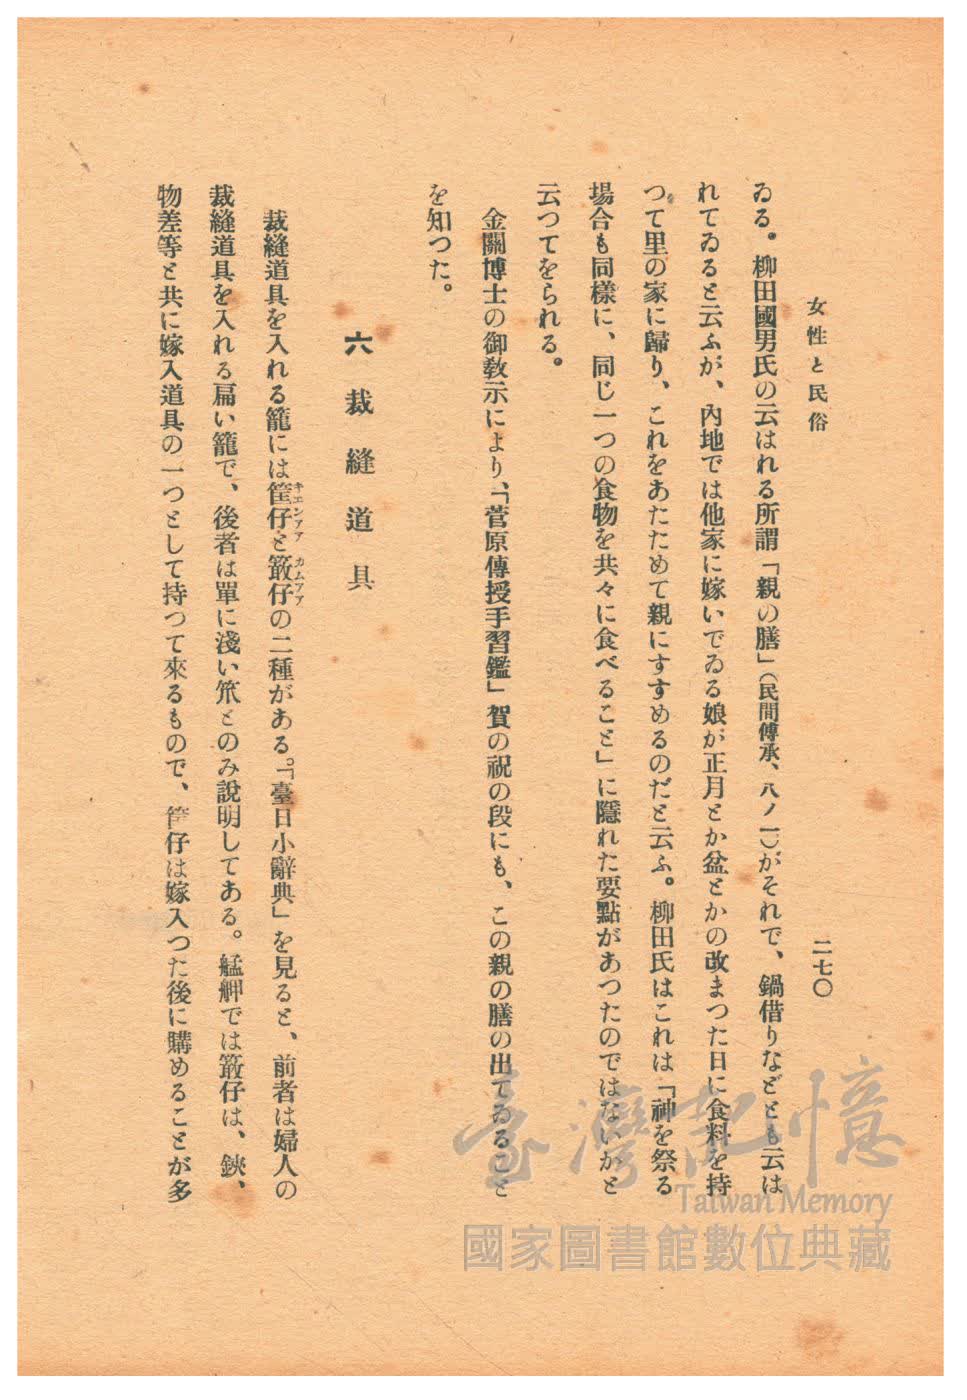 女性と民俗
二七〇
ゐる。柳田國男氏の云はれる所謂「親の膳」(民間傳承、八ノ一)がそれで、鍋借りなどとも云は
れてゐると云ふが、內地では他家に嫁いでゐる娘が正月とか盆とかの改まつた日に食料を持
つて里の家に歸り、これをあたためて親にすすめるのだと云ふ。柳田氏はこれは「神を祭る
場合も同樣に、同じ一つの食物を共々に食べること」に隱れた要點があつたのではないかと
云つてをられる。
金關博士の御敎示により、「菅原傳授手習鑑」賀の祝の段にも、この親の膳の出てゐること
を知つた。
六 裁縫道具
裁縫道具を入れる籠には筐仔と簸仔の二種がある。「臺日小辭典」を見ると、前者は婦人の
キエンアア カムアア
裁縫道具を入れる扁い籠で、後者は單に淺い笊とのみ說明してある。艋舺では簸仔は、鋏、
物差等と共に嫁入道具の一つとして持つて來るもので、筐仔は嫁入つた後に購めることが多
臺灣記憶
Taiwan Memory
國家圖書館數位典藏